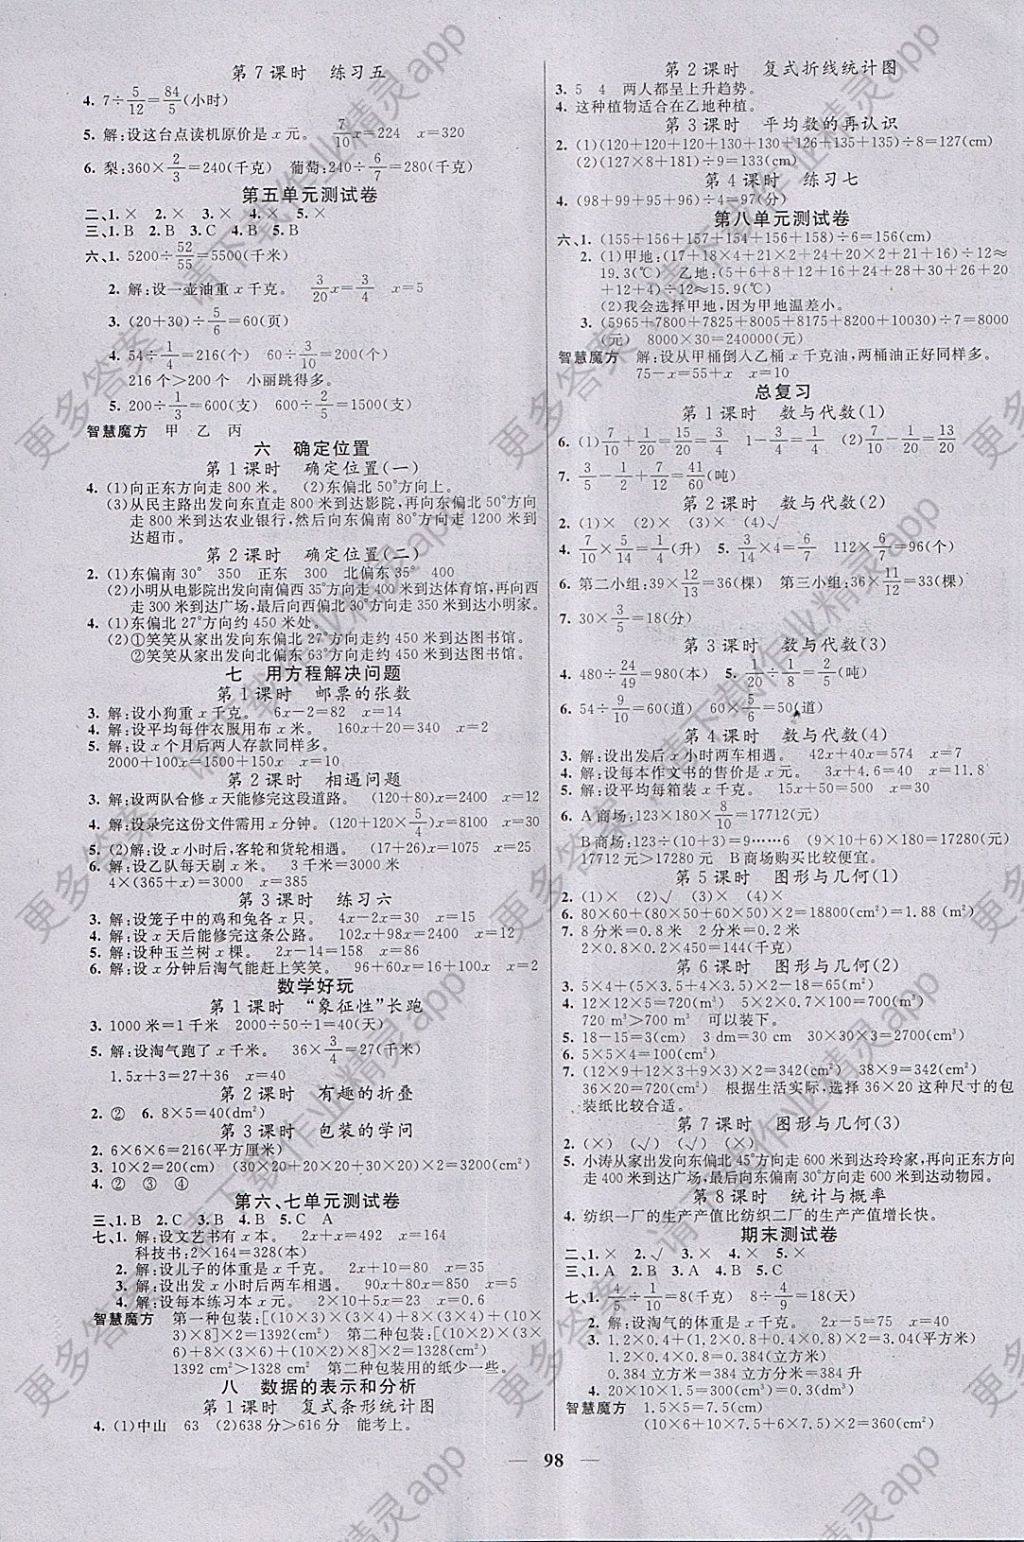 第7课时 练习五
4. 7÷5/12=84/5(小时)
5. 解:设这台点读机原价是x元。 7/10x=224 x=320
6. 梨:360×2/3=240(千克) 葡萄:240÷6/7=280(千克)
第五单元测试卷
二、1.× 2.× 3.× 4.× 5.×
三、1.B 2.B 3.C 4.B 5.B
六、1. 5200÷52/55=5500(千米)
2. 解:设一壶油重x千克。 3/20x=3/4 x=5
3. (20+30)÷5/6=60(页)
4. 54÷1/4=216(个) 60÷3/10=200(个)
216个>200个 小丽跳得多。
5. 200÷1/3=600(支) 600÷2/5=1500(支)
智慧魔方 甲 乙 丙
六 确定位置
第1课时 确定位置(一)
4. (1)向正东方向走800米。 (2)东偏北50°方向上。
(3)从民主路出发向东直走800米到达影院,再向东偏北50°方向
走800米到达农业银行,然后向东偏南80°方向走1200米到
达超市。
第2课时 确定位置(二)
2. (1)东偏南30° 350 正东 300 北偏东35° 400
(2)小明从电影院出发向南偏西35°方向走400米到达体育馆,再向西
走300米到达广场,最后向西偏北30°方向走350米到达小明家。
4. (1)东偏北27°方向约450米处。
(2)①笑笑从家出发向东偏北27°方向走约450米到达图书馆。
②笑笑从家出发向北偏东63°方向走约450米到达图书馆。
七 用方程解决问题
第1课时 邮票的张数
3. 解:设小狗重x千克。 6x-2=82 x=14
4. 解:设平均每件衣服用布x米。 160x+20=340 x=2
5. 解:设x个月后两人存款同样多。
2000+100x=1500+150x x=10
第2课时 相遇问题
3. 解:设两队合修x天能修完这段道路。 (120+80)x=2400 x=12
4. 解:设录完这份文件需用x分钟。 (120+120×5/4)x=8100 x=30
5. (2)解:设x小时后,客轮和货轮相遇。 (17+26)x=1075 x=25
6. 解:设乙队每天刷x米。 3千米=3000米
4×(365+x)=3000 x=385
第3课时 练习六
3. 解:设笼子中的鸡和兔各x只。 4x-2x=30 x=15
4. 解:设x天后能修完这条公路。 102x+98x=2400 x=12
5. 解:设种玉兰树x棵。 2x-14=158 x=86
6. 解:设x分钟后淘气能赶上笑笑。 96+60x=16+100x x=2
数学好玩
第1课时 “象征性”长跑
3. 1000米=1千米 2000÷50÷1=40(天)
5. 解:设淘气跑了x千米。 36×3/4=27(千米)
1.5x+3=27+36 x=40
第2课时 有趣的折叠
2. ② 6. 8×5=40(dm²)
第3课时 包装的学问
2. 6×6×6=216(平方厘米)
3. 10×2=20(cm) (30×20+20×20+30×20)×2=3200(cm²)
4. ① ② ③ ④
第六、七单元测试卷
三、1.B 2.C 3.B 4.B 5.C A
七、1. 解:设文艺书有x本。 2x+x=492 x=164
科技书:2×164=328(本)
2. 解:设儿子的体重是x千克。 2x+10=80 x=35
3. 解:设出发x小时后两车相遇。 90x+80x=850 x=5
4. 解:设每本练习本x元。 2×10+5x=23 x=0.6
智慧魔方 第一种包装:[(10×3)×(3×4)+(8×3)×(3×4)+(10×
3)×8]×2=1392(cm²) 第二种包装:[(10×2)×(3×
6)+(8×2)×(3×6)+(10×2)×(8×2)]×2=1328(cm²)
1392 cm²>1328 cm² 第二种包装用的纸少一些。
八 数据的表示和分析
第1课时 复式条形统计图
4. (1)中山 63 (2)638分>616分 能考上。
第2课时 复式折线统计图
3. 5 4 两人都呈上升趋势。
4. 这种植物适合在乙地种植。
第3课时 平均数的再认识
2. (1)(120+120+120+130+130+126+135+135)÷8=127(cm)
(2)(127×8+181)÷9=133(cm)
第4课时 练习七
4. (98+99+95+96)÷4=97(分)
第八单元测试卷
六、1. (155+156+157+154+156+158)÷6=156(cm)
2. (1)甲地:(17+18×4+21×2+24+20×2+21+16)÷12≈
19.3(℃) 乙地:(5+6+8+12+16+24+28+34+30+26+20
+12+4)÷12≈15.9(℃)
(2)我会选择甲地,因为甲地温差小。
3. (5965+7800+7825+8005+8175+8200+10030)÷7=8000
(元) 8000×30=240000(元)
智慧魔方 解:设从甲桶倒入乙桶x千克油,两桶油正好同样多。
75-x=55+x x=10
总复习
第1课时 数与代数(1)
6. (1)7/10+1/20=15/20=3/4 1-3/4=1/4 (2)7/10-1/20=13/20
7. 3/5-1/2+7/12=41/60(吨)
第2课时 数与代数(2)
2. (1)× (2)× (3)× (4)√
4. 7/10×5/14=1/4(升) 5. 3/14×4=6/7 112×6/7=96(个)
6. 第二小组:39×12/13=36(棵) 第三小组:36×11/12=33(棵)
7. 30×3/5=18(分)
第3课时 数与代数(3)
4. 480÷24/49=980(本) 5. 1/20÷1/8=2/5(吨)
6. 54÷9/10=60(道) 60×5/6=50(道)
第4课时 数与代数(4)
3. 解:设出发后x小时两车相遇。 42x+40x=574 x=7
4. 解:设每本作文书的售价是x元。 3x+4.6=40 x=11.8
5. 解:设平均每箱装x千克。
6. A商场:123×180×8/10=17712(元)
B商场:123÷(10+3)=9……6 (9×10+6)×180=17280(元)
17712元>17280元 B商场购买比较便宜。
第5课时 图形与几何(1)
2. (1)× (2)× (3)√ (4)×
6. 80×60+(80×50+60×50)×2=18800(cm²)=1.88 (m²)
7. 8分米=0.8米 2分米=0.2米
2×0.8×0.2×450=144(千克)
第6课时 图形与几何(2)
3. 5×4+(5×3.5+4×3.5)×2-18=65(m²)
4. 12×12×5=720(m³) 5×2×0.7×100=700(m³)
720 m³>700 m³ 可以装下。
5. 18-15=3(cm) 3 dm=30 cm 30×30×3=2700(cm³)
6. 5×5×4=100(cm²)
7. (12×9+12×3+9×3)×2=342(cm²) 38×9=342(cm²)
36×20=720(cm²) 根据生活实际,选择36×20这种尺寸的包
装纸比较合适。
第7课时 图形与几何(3)
2. (×) (√) (√) (×)
5. 小涛从家出发向东偏北45°方向走600米到达玲玲家,再向正东方向
走400米到达大剧院,最后向东偏南30°方向走600米到达动物园。
第8课时 统计与概率
4. 纺织一厂的生产产值比纺织二厂的生产产值增长快。
期末测试卷
二、1.× 2.√ 3.× 4.× 5.×
三、1.A 2.B 3.A 4.B 5.C
2. 解:设淘气的体重是x千克。 2x-5=75 x=40
3. 1.2×0.4+(1.2×0.8+0.4×0.8)×2=3.04(平方米)
1.2×0.4×0.8=0.384(立方米)
0.384立方米=384立方分米=384升
4. 20×10×1.5=300(m³)=0.3(dm³)
智慧魔方 1.5×5=7.5(cm)
(10×6+10×7.5+6×7.5)×2=360(cm²)
98